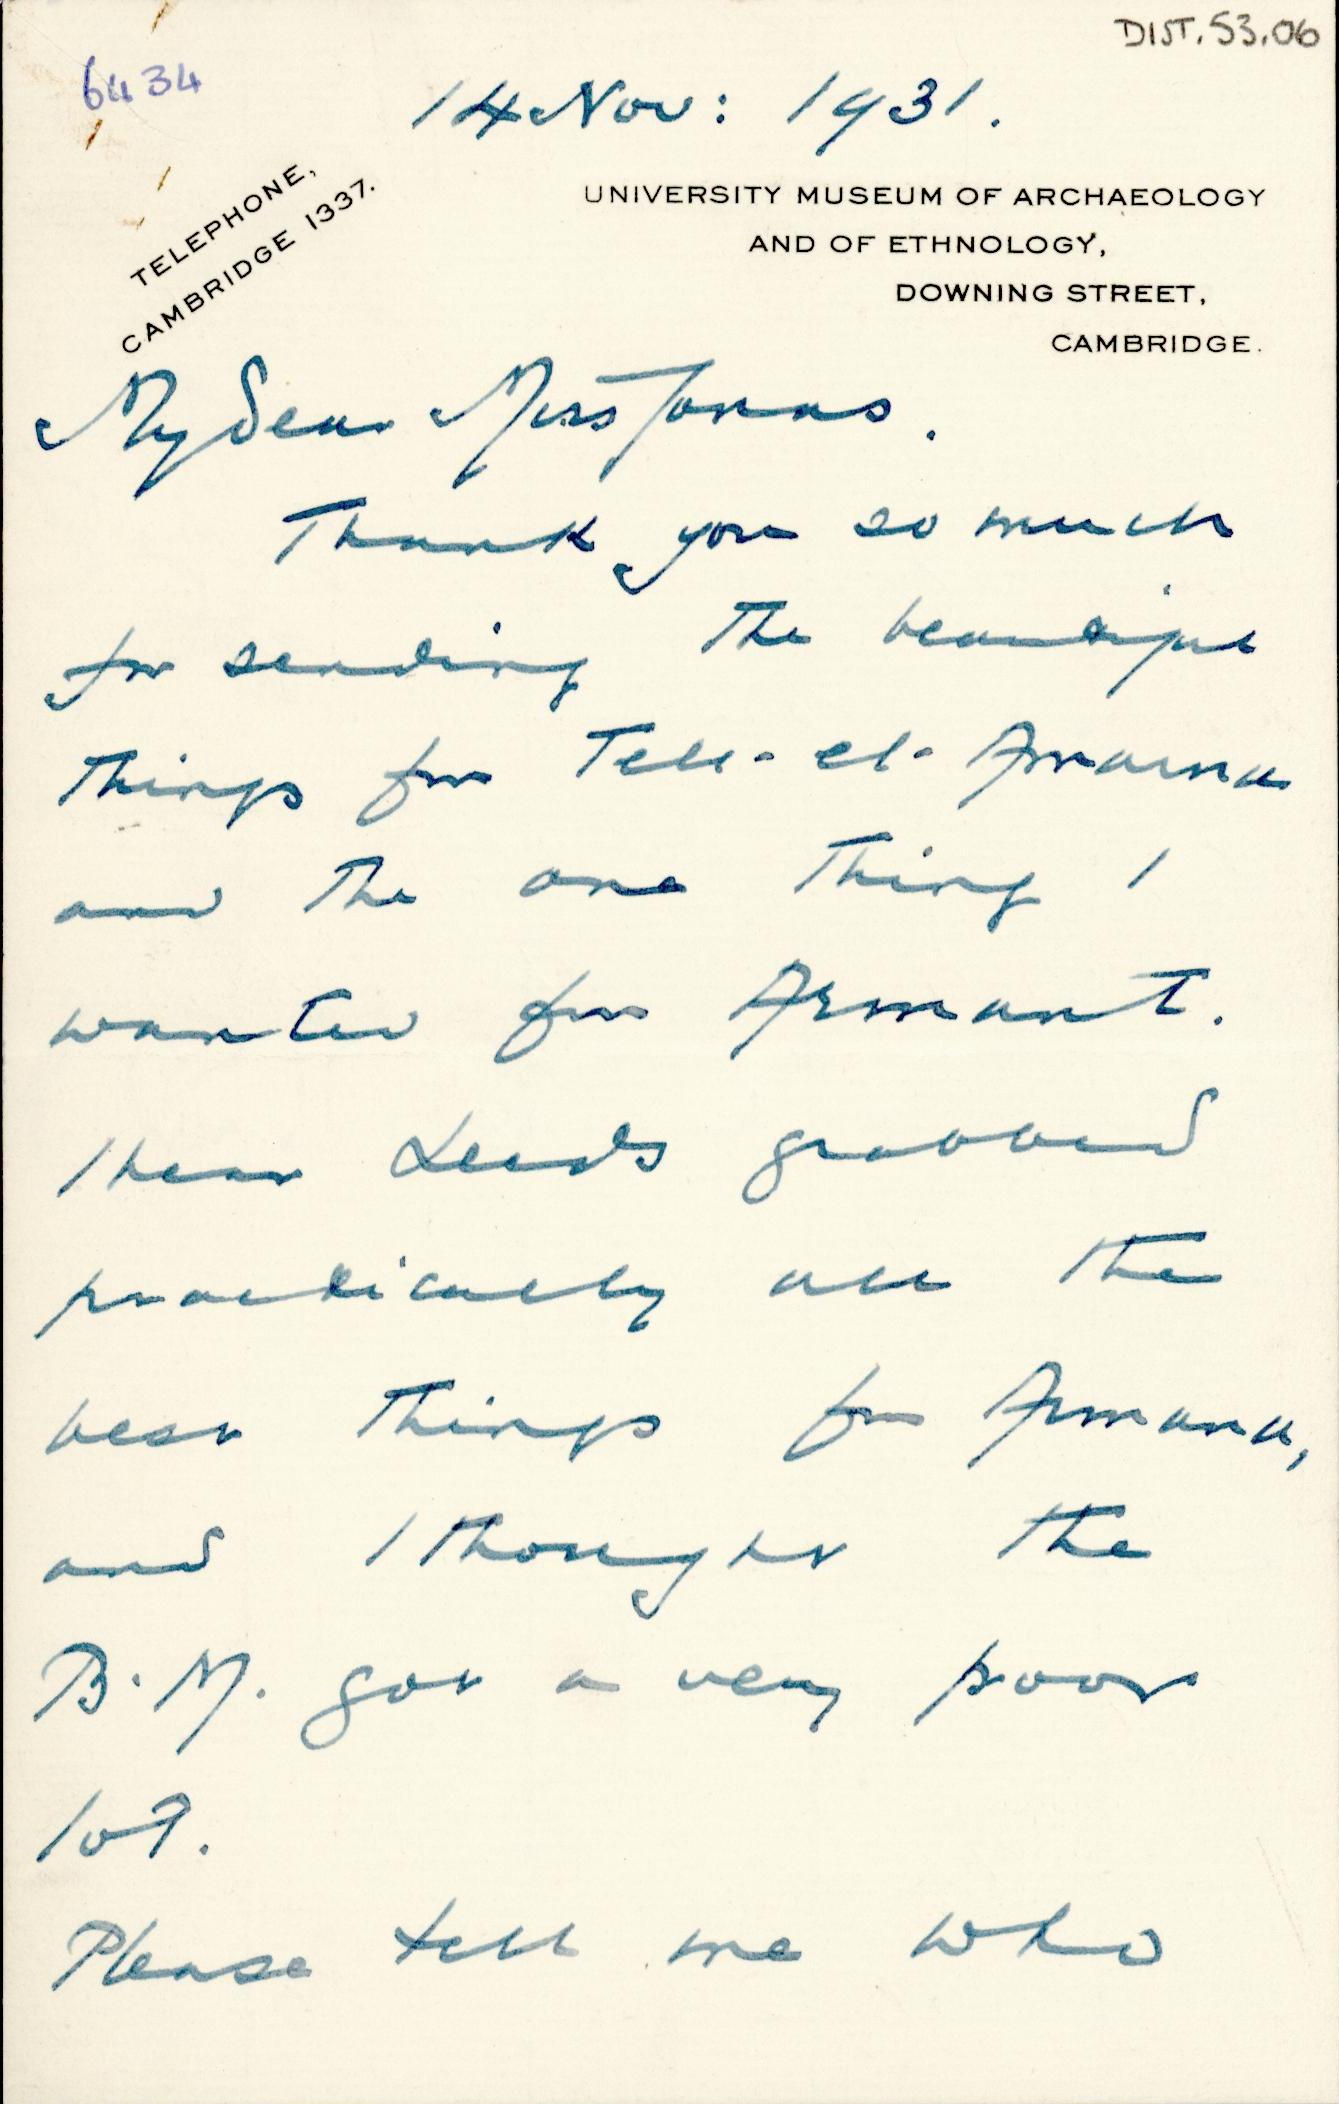 DIST.53.06
6434
14 Nov: 1931.
TELEPHONE,
CAMBRIDGE 1337.
UNIVERSITY MUSEUM OF ARCHAEOLOGY
AND OF ETHNOLOGY,
DOWNING STREET,
CAMBRIDGE.
My dear Miss Jonas.
Thank you so much
for sending the beautiful
things from Tell-el-Amarna
and the one thing I
wanted from Armant.
I hear Leeds grabbed
practically all the
best things from Armana,
and I thought the
B.M. got a very poor
lot.
Please tell me who